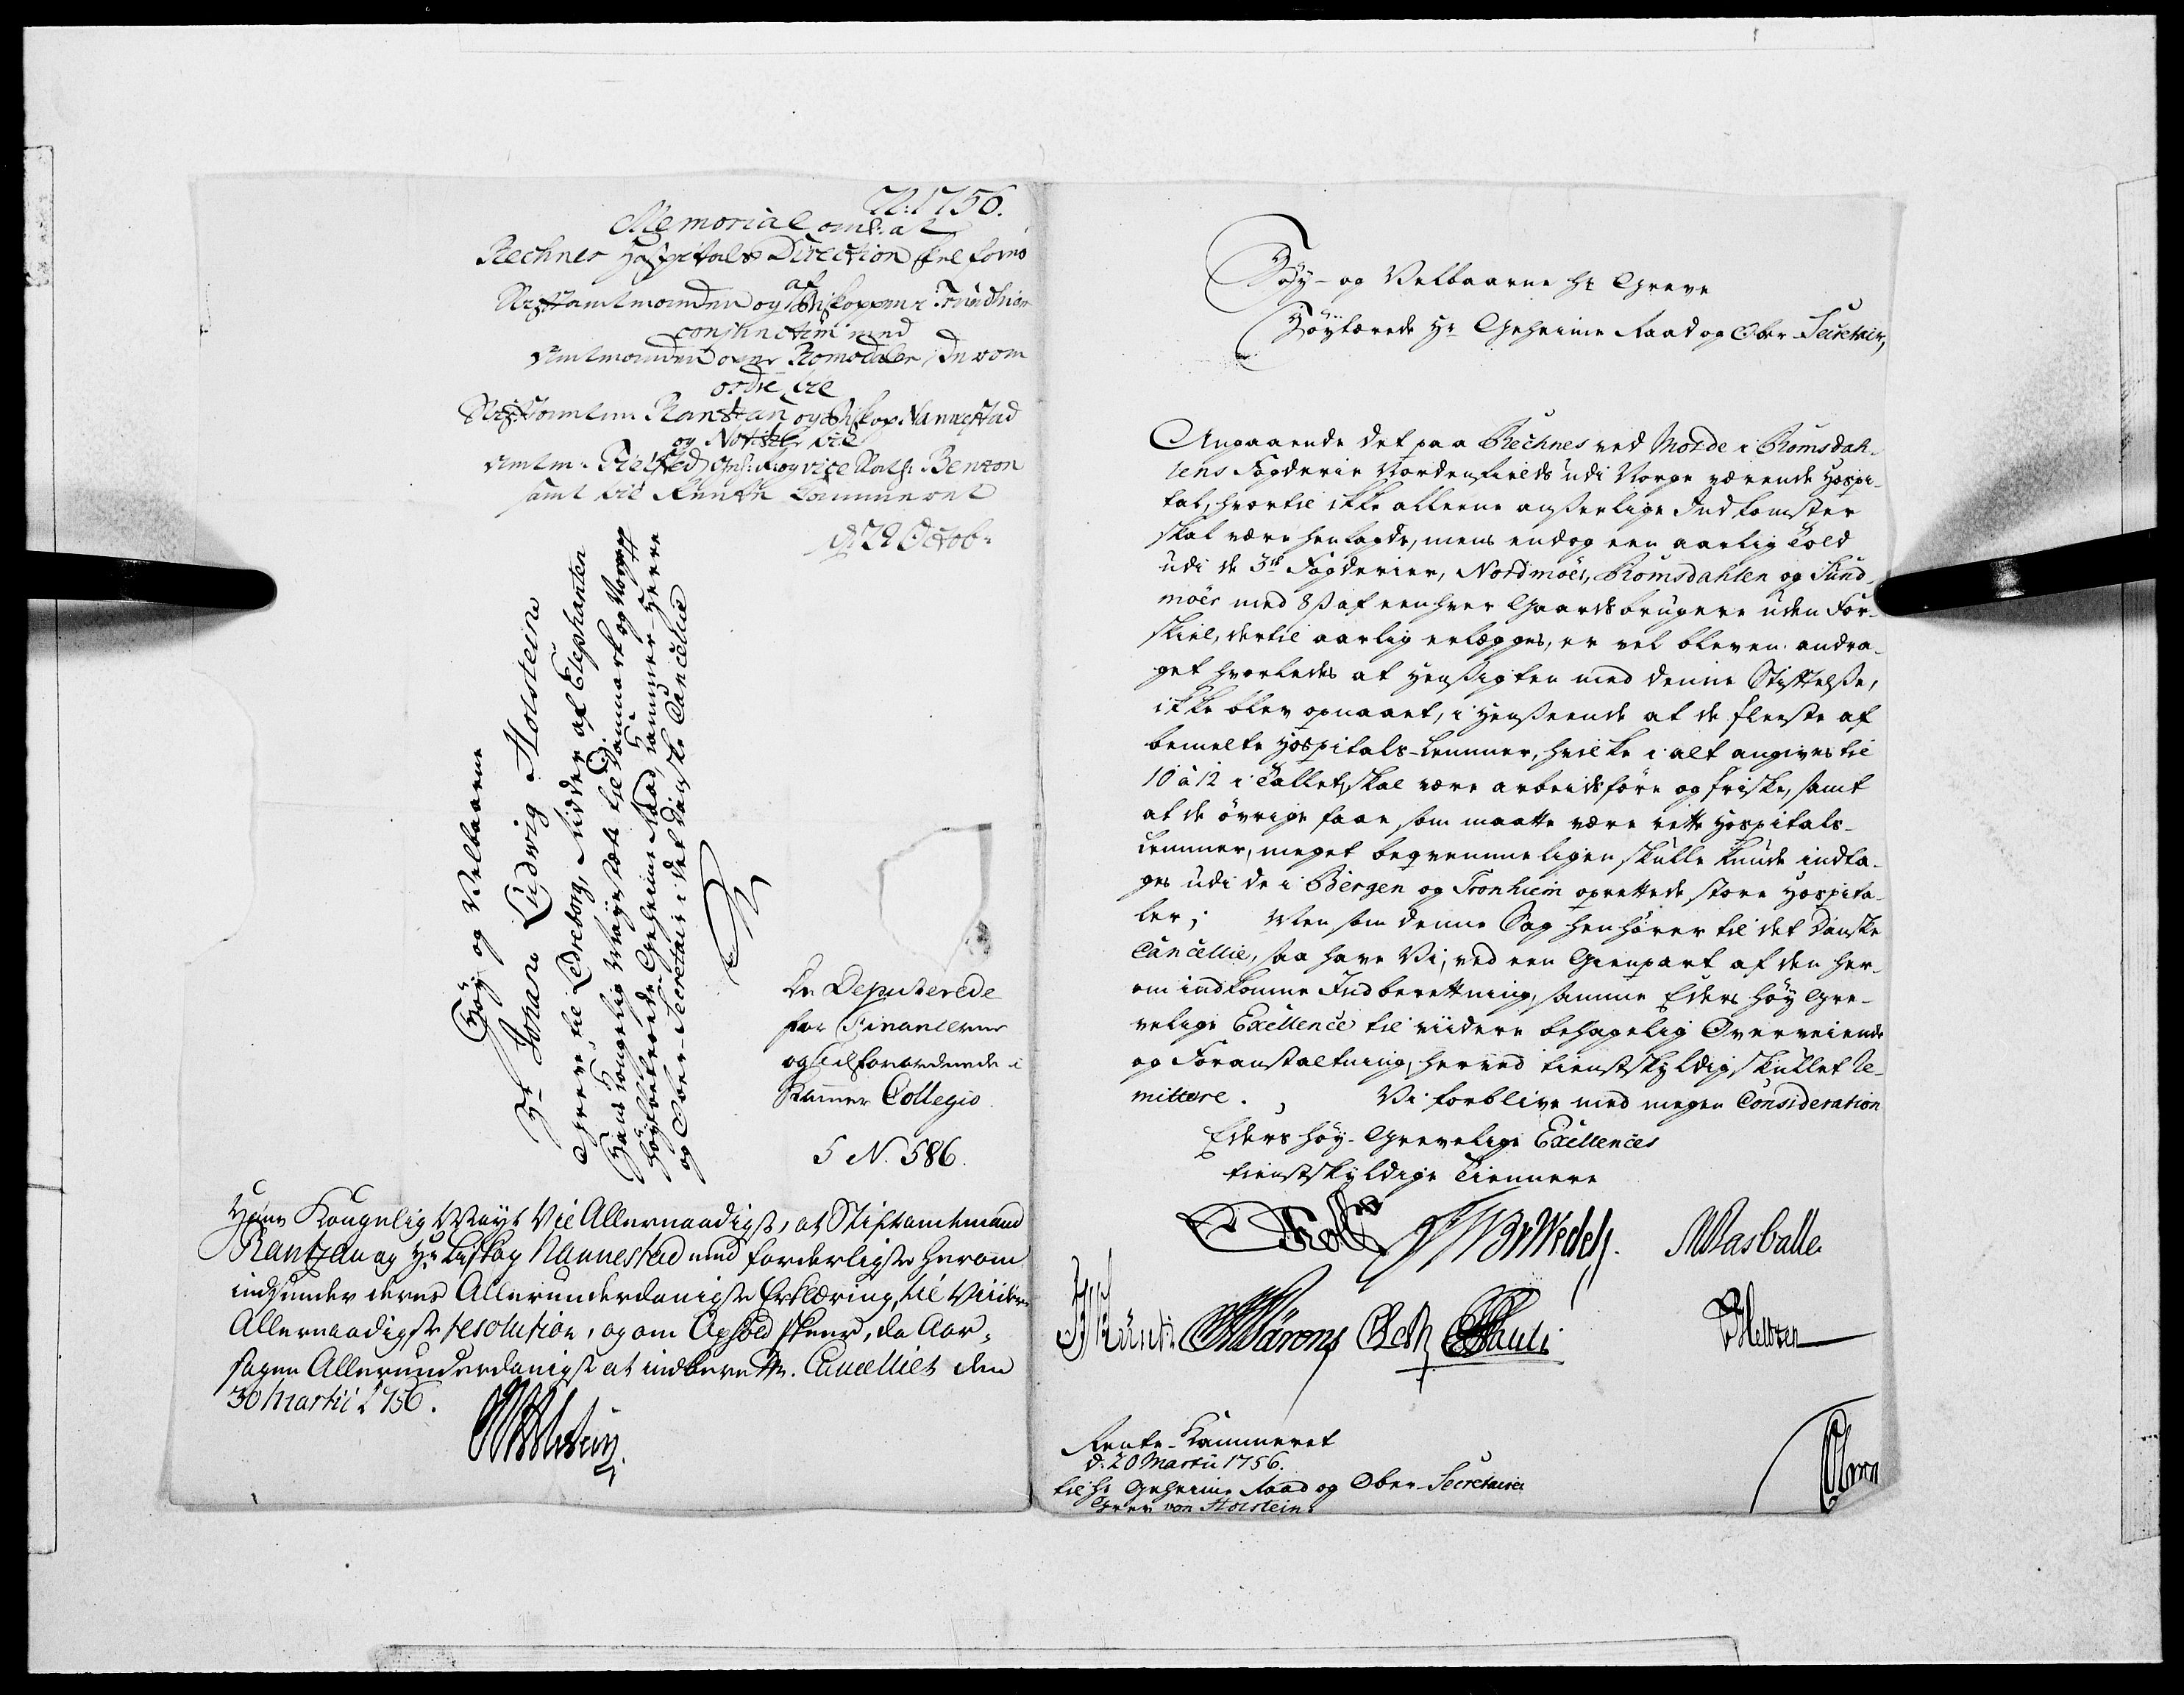 N: 1756.
Memorial
Rechnes Hospitals Direction
Stiftamtmanden og Biskoppen i Trundhiem
af
conjunctim med
Amtmanden over Romsdalen
ordre til
Stiftamtm: Rantzau og Biskop Nannestad
og Notitz til
samt til Rente Cammeret
d. 29 Octob:
Høy og Velbaarne
Hr Johan Ludvig Holstein
Greve til Ledreborg, Ridder af Elephanten
Hans Kongelig Mayestæt til Danmark og Norge
høybetroede Geheime Raad, Cammer-Herre
og Ober-Secretair i det Danske Cancellie
De Deputerede
for Finantzerne
og Tilforordnede i
Kammer Collegio
5 N. 586.
Hans Kongelig Mayt Vil Allernaadigst, at Stiftamtmand
Rantzau og Hr Biskop Nannestad med forderligste herom
indsender deres Allerunderdanigste Erklæring, til Viidere
Allernaadigste resolution, og om Ophold skeer, da Aar-
sagen Allerunderdanigst at indberette. Cancelliet den
30 Martii 1756.
JLHolstein
Høy- og Velbaarne Hr Greve
Høybetroede Hr Geheime Raad og Ober Secretair,
Angaaende det paa Rechnes ved Molde i Romsdah-
lens Fogderie Nordenfields udi Norge værende Hospi-
tal, hvortil ikke alleene anseelige Indkomster
skal være henlagde, mens endog een aarlig Told
udi de 3de Fogderier, Nordmöer, Romsdahlen og Sund-
möer med 8 ß af een hver Gaardsbrugere uden For-
skiel, dertil aarlig erlægges, er vel bleven andra-
get hvorledes at Hensigten med denne Stiftelse,
ikke blev opnaaet, i Henseende at de fleeste af
bemelte Hospitals-Lemmer, hvilke i alt angives til
10 à 12 i Tallet, skal være arbeidsföre og friske, samt
at de övrige faae, som maatte være rette Hospitals-
Lemmer, meget beqvemmeligen skulle kunde indta-
ges udi de i Bergen og Tronhiem oprettede store Hospita-
ler; Men som denne Sag henhører til det Danske
Cancellie, saa have Vi, ved een Gienpart af den her-
om indkomne Indberettning, samme Eders Høy Gre-
velige Excellence til viidere behagelig Overveiende
og Foranstaltning, herved tienstskyldig skullet Re-
mittere. Vi forblive med megen Consideration
Eders Høy-Grevelige Excellences
tienstskyldige Tiennere
Rente-Kammeret
d: 20 Martii 1756.
til Hr Geheime Raad og Ober-Secretaire
Grev von Holstein